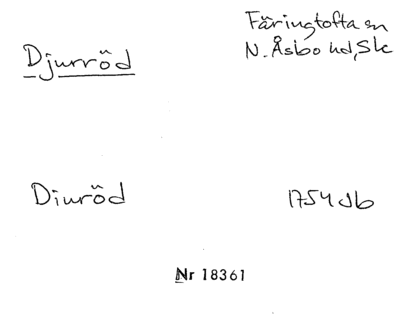 Djurröd
Färingtofta sn
N. Åsbo hd, Sk
Diuröd
1754 Jb
Nr 18361